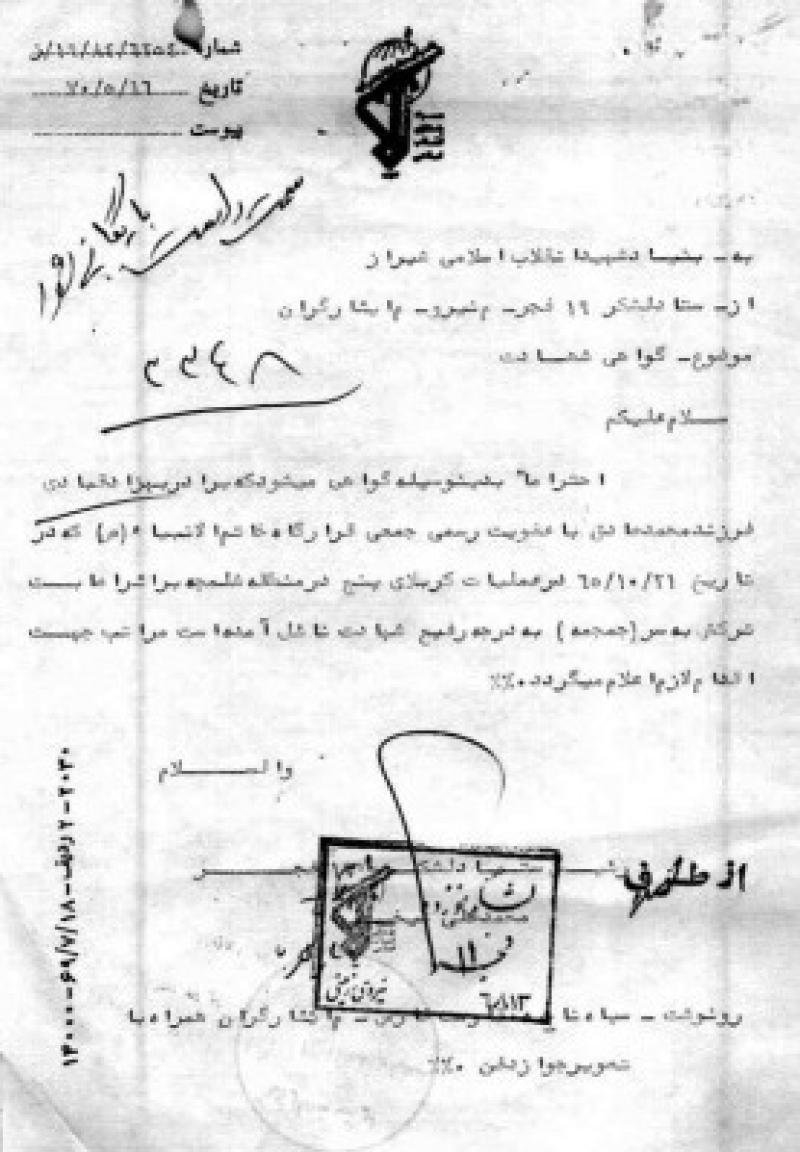 شماره ۱۹/۸۴/۶۲۵۴۰/ق
تاریخ ۷۰/۵/۱۶
پیوست
به - بنیاد شهید انقلاب اسلامی شیراز
از - ستاد لشکر ۱۹ فجر - م نیرو - م ایثارگران
موضوع - گواهی شهادت
۳۳۴۸
سلام علیکم
احتراما" بدینوسیله گواهی میشود که برادر بهزاد قبادی
فرزند محمد صادق با عضویت رسمی جمعی قرارگاه خاتم الانبیاء (ص) که در
تاریخ ۶۵/۱۰/۲۶ در عملیات کربلای پنج در منطقه شلمچه بر اثر اصابت
ترکش به سر (جمجمه) به درجه رفیع شهادت نائل آمده است مراتب جهت
اقدام لازم اعلام میگردد.٪٪
والسلام
از طرف
لشکر
نیروی زمینی
رونوشت - سپاه - م ایثارگران همراه با
تصویر جواز دفن .٪٪
۱۳۰۰۰-۶۹/۷/۱۸-ردیف ۲-۲۰۳۰